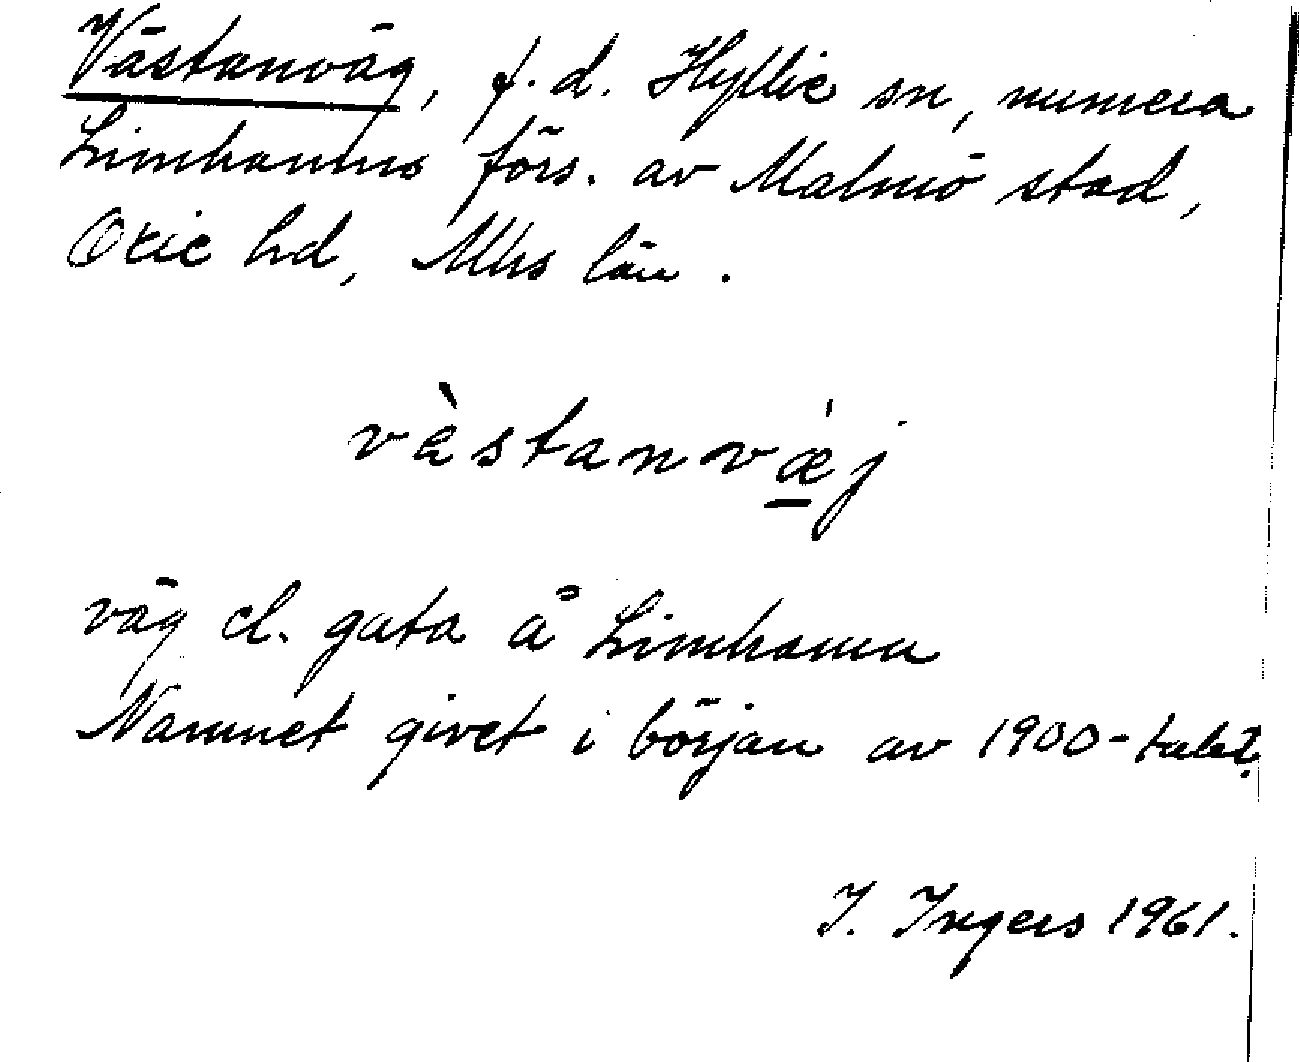 Västanväg, f.d. Hyllie sn, numera
Limhamns förs. av Malmö stad,
Oxie hd, Mhs län.
vàstanvǽ̱j
väg el. gata å Limhamn
Namnet givet i början av 1900-talet.
I. Ingers 1961.